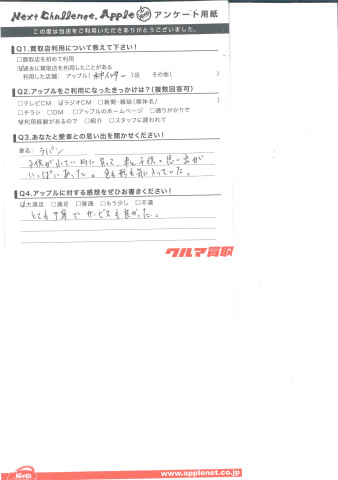 Next Challenge. Apple アンケート用紙
この度は当店をご利用いただきありがとうございました。
Q1.買取店利用について教えて下さい!
□買取店を初めて利用
☑過去に買取店を利用したことがある
利用した店舗: アップル( インター )店 その他( )
Q2.アップルをご利用になったきっかけは?(複数回答可)
□テレビCM ☑ラジオCM □新聞・雑誌(媒体名/ )
□チラシ □DM □アップルのホームページ □通りがかりで
☑利用経験があるので □紹介 □スタッフに誘われて
Q3.あなたと愛車との思い出を聞かせください!
車名: ラパン
子供が小さい時に買って、車と子供の思い出が
いっぱいあった。色も形も気に入っていた。
Q4.アップルに対する感想をぜひお書きください!
☑大満足 □満足 □普通 □もう少し □不満
とても丁寧でサービスも良かった。
クルマ買取
www.applenet.co.jp